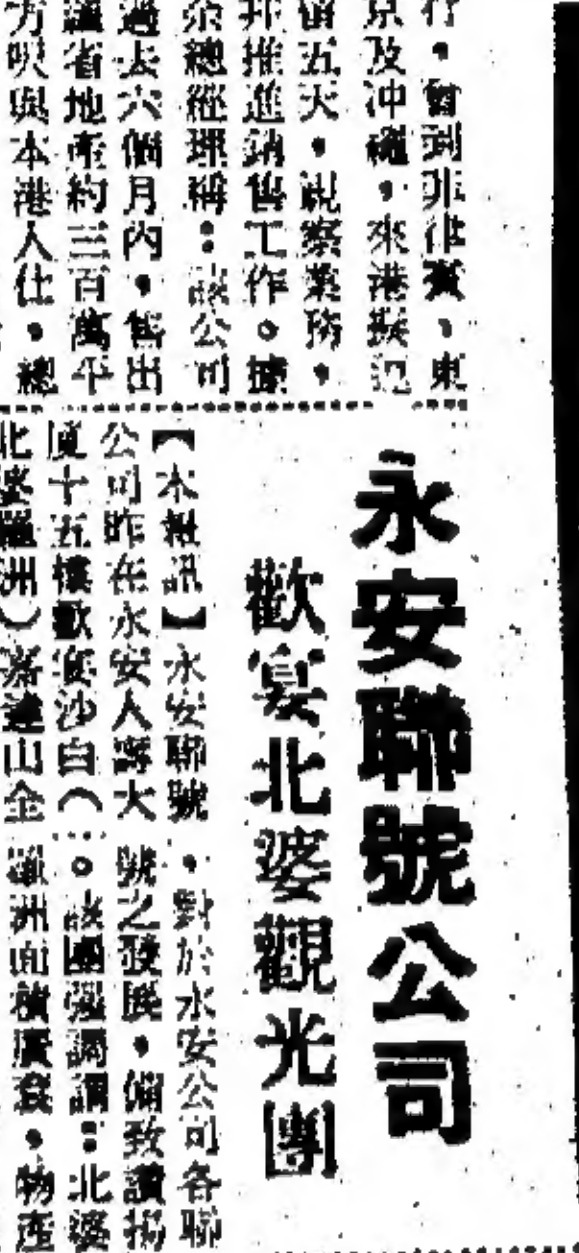 行，暫到非律賓、東
京及冲繩，來港擬逗
留五天，視察業務，
并推進銷售工作。據
余總經理稱：該公司
過去六個月內，售出
省地產約三百萬平
方呎與本港人仕，總
永安聯號公司
歡宴北婆觀光團
【本報訊】永安聯號
公司昨在永安人壽大
廈十五樓歡宴沙白（
北婆羅洲）山全
，對於永安公司各聯
號之發展，備致讚揚
。該團強調謂：北婆
羅洲面積廣袤，物產